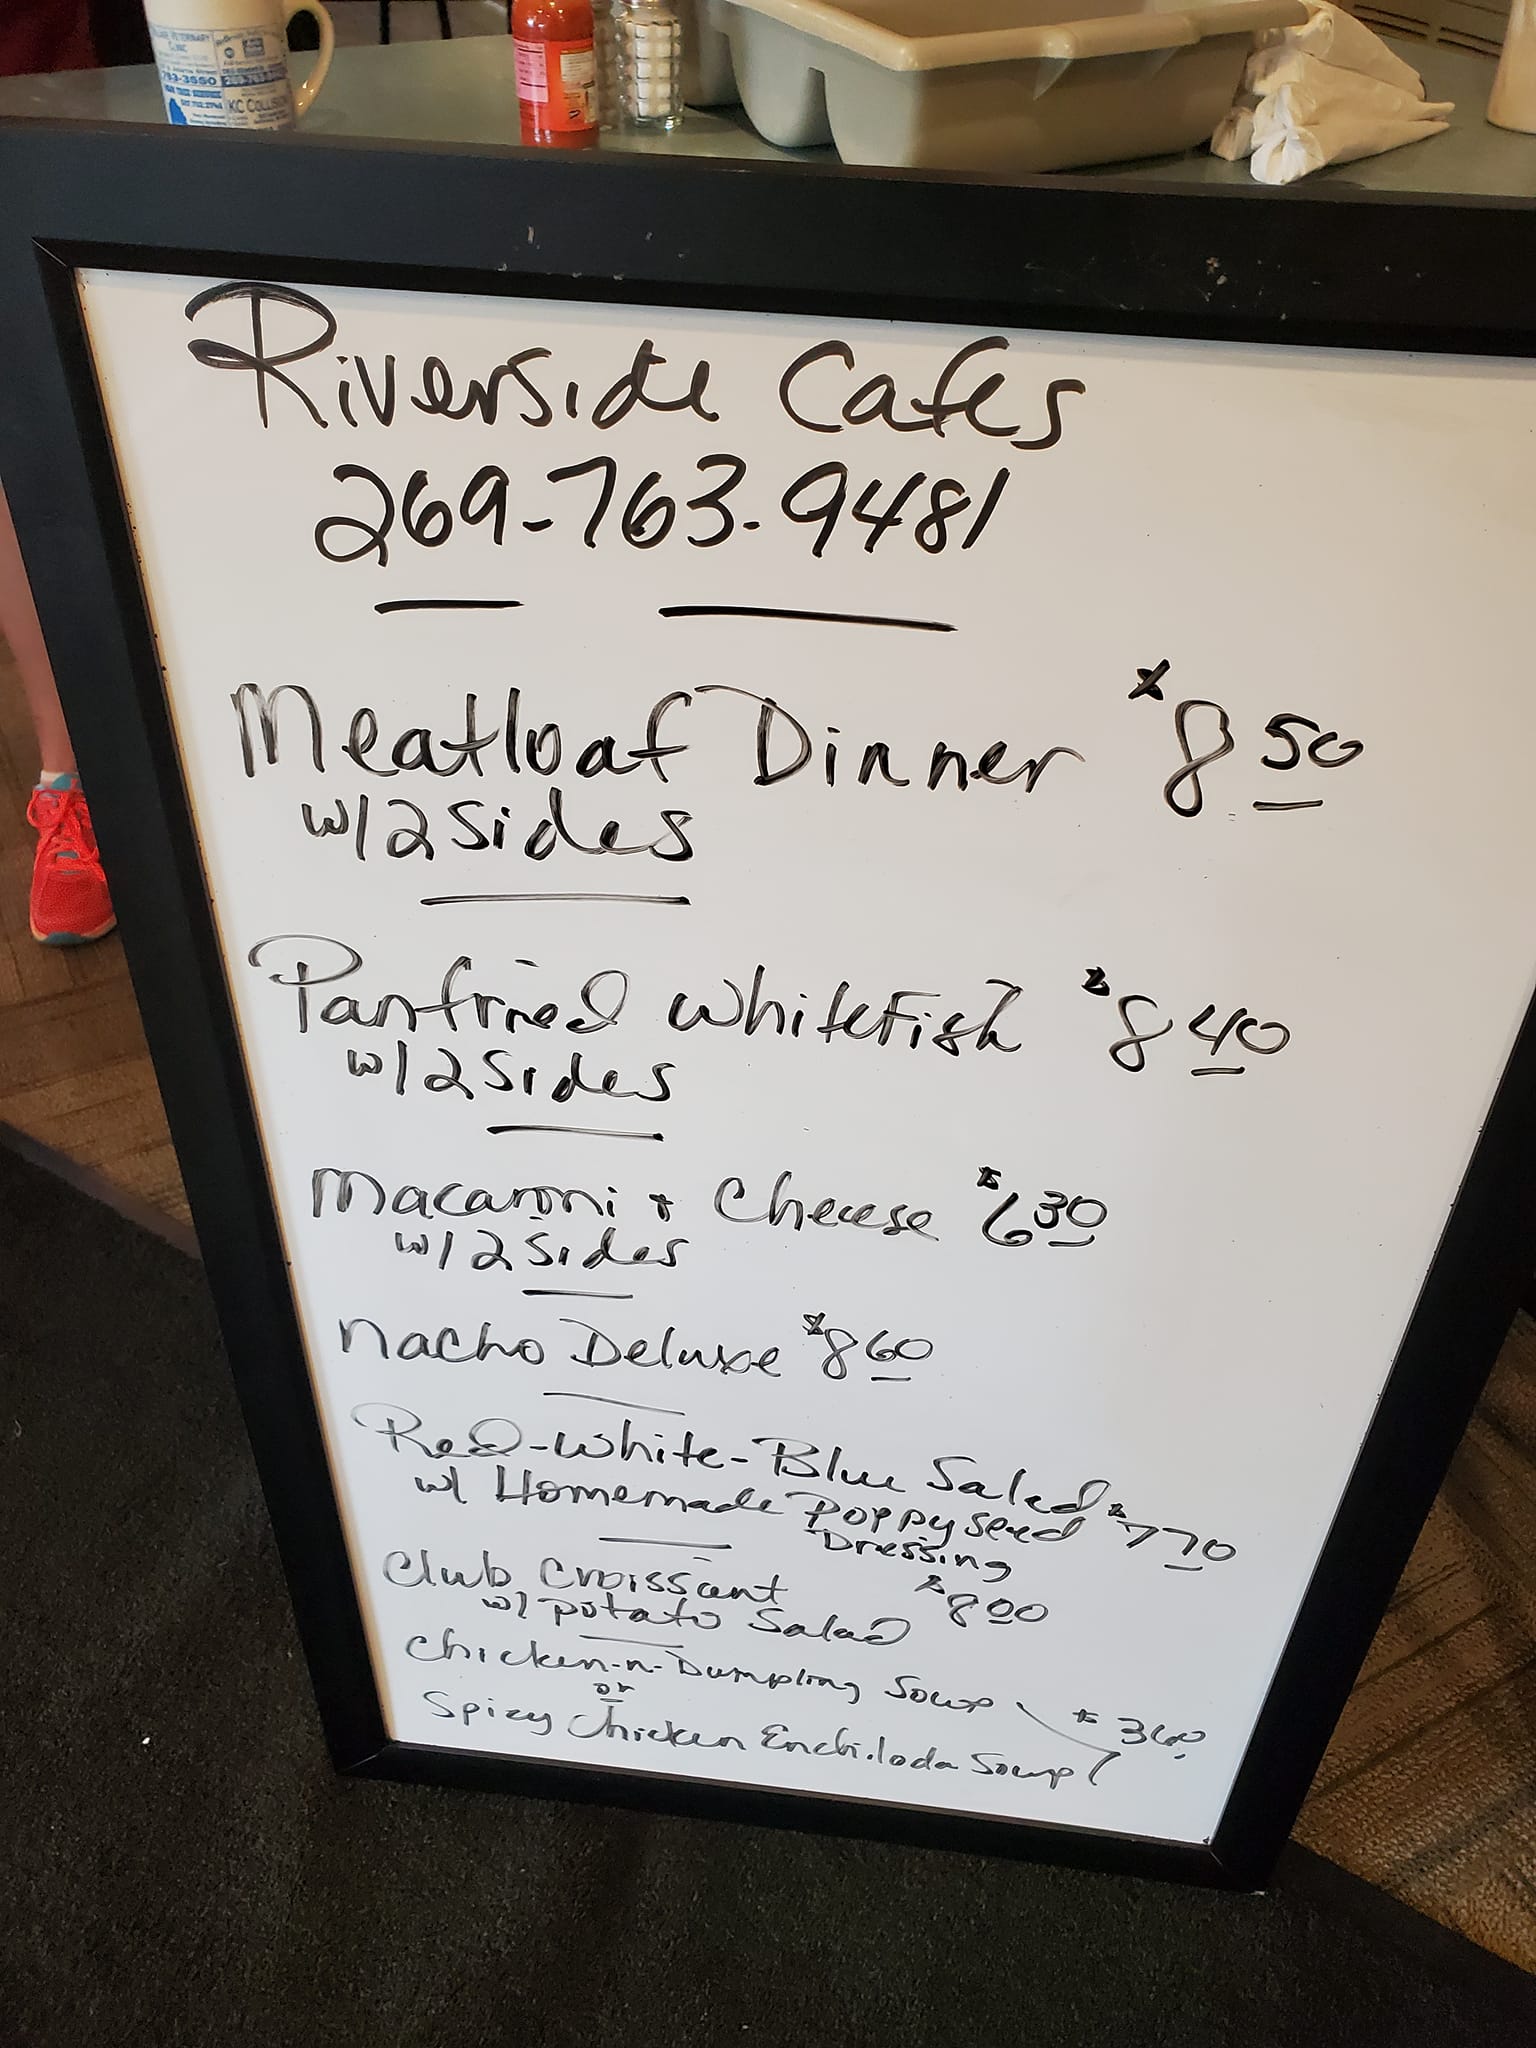 Riverside Cafes
269-763-9481
Meatloaf Dinner $8 50
w/2 Sides
Panfried Whitefish $8 40
w/2 Sides
Macaroni + Cheese $6 30
w/2 Sides
Nacho Deluxe $8 60
Red-White-Blue Salad
w/ Homemade Poppyseed $7 70
Dressing
Club Croissant $8 00
w/ potato Salad
Chicken-n-Dumpling Soup
or $3 60
Spicy Chicken Enchilada Soup
VETERINARY
CLINIC
793-3550
KC COLLISION